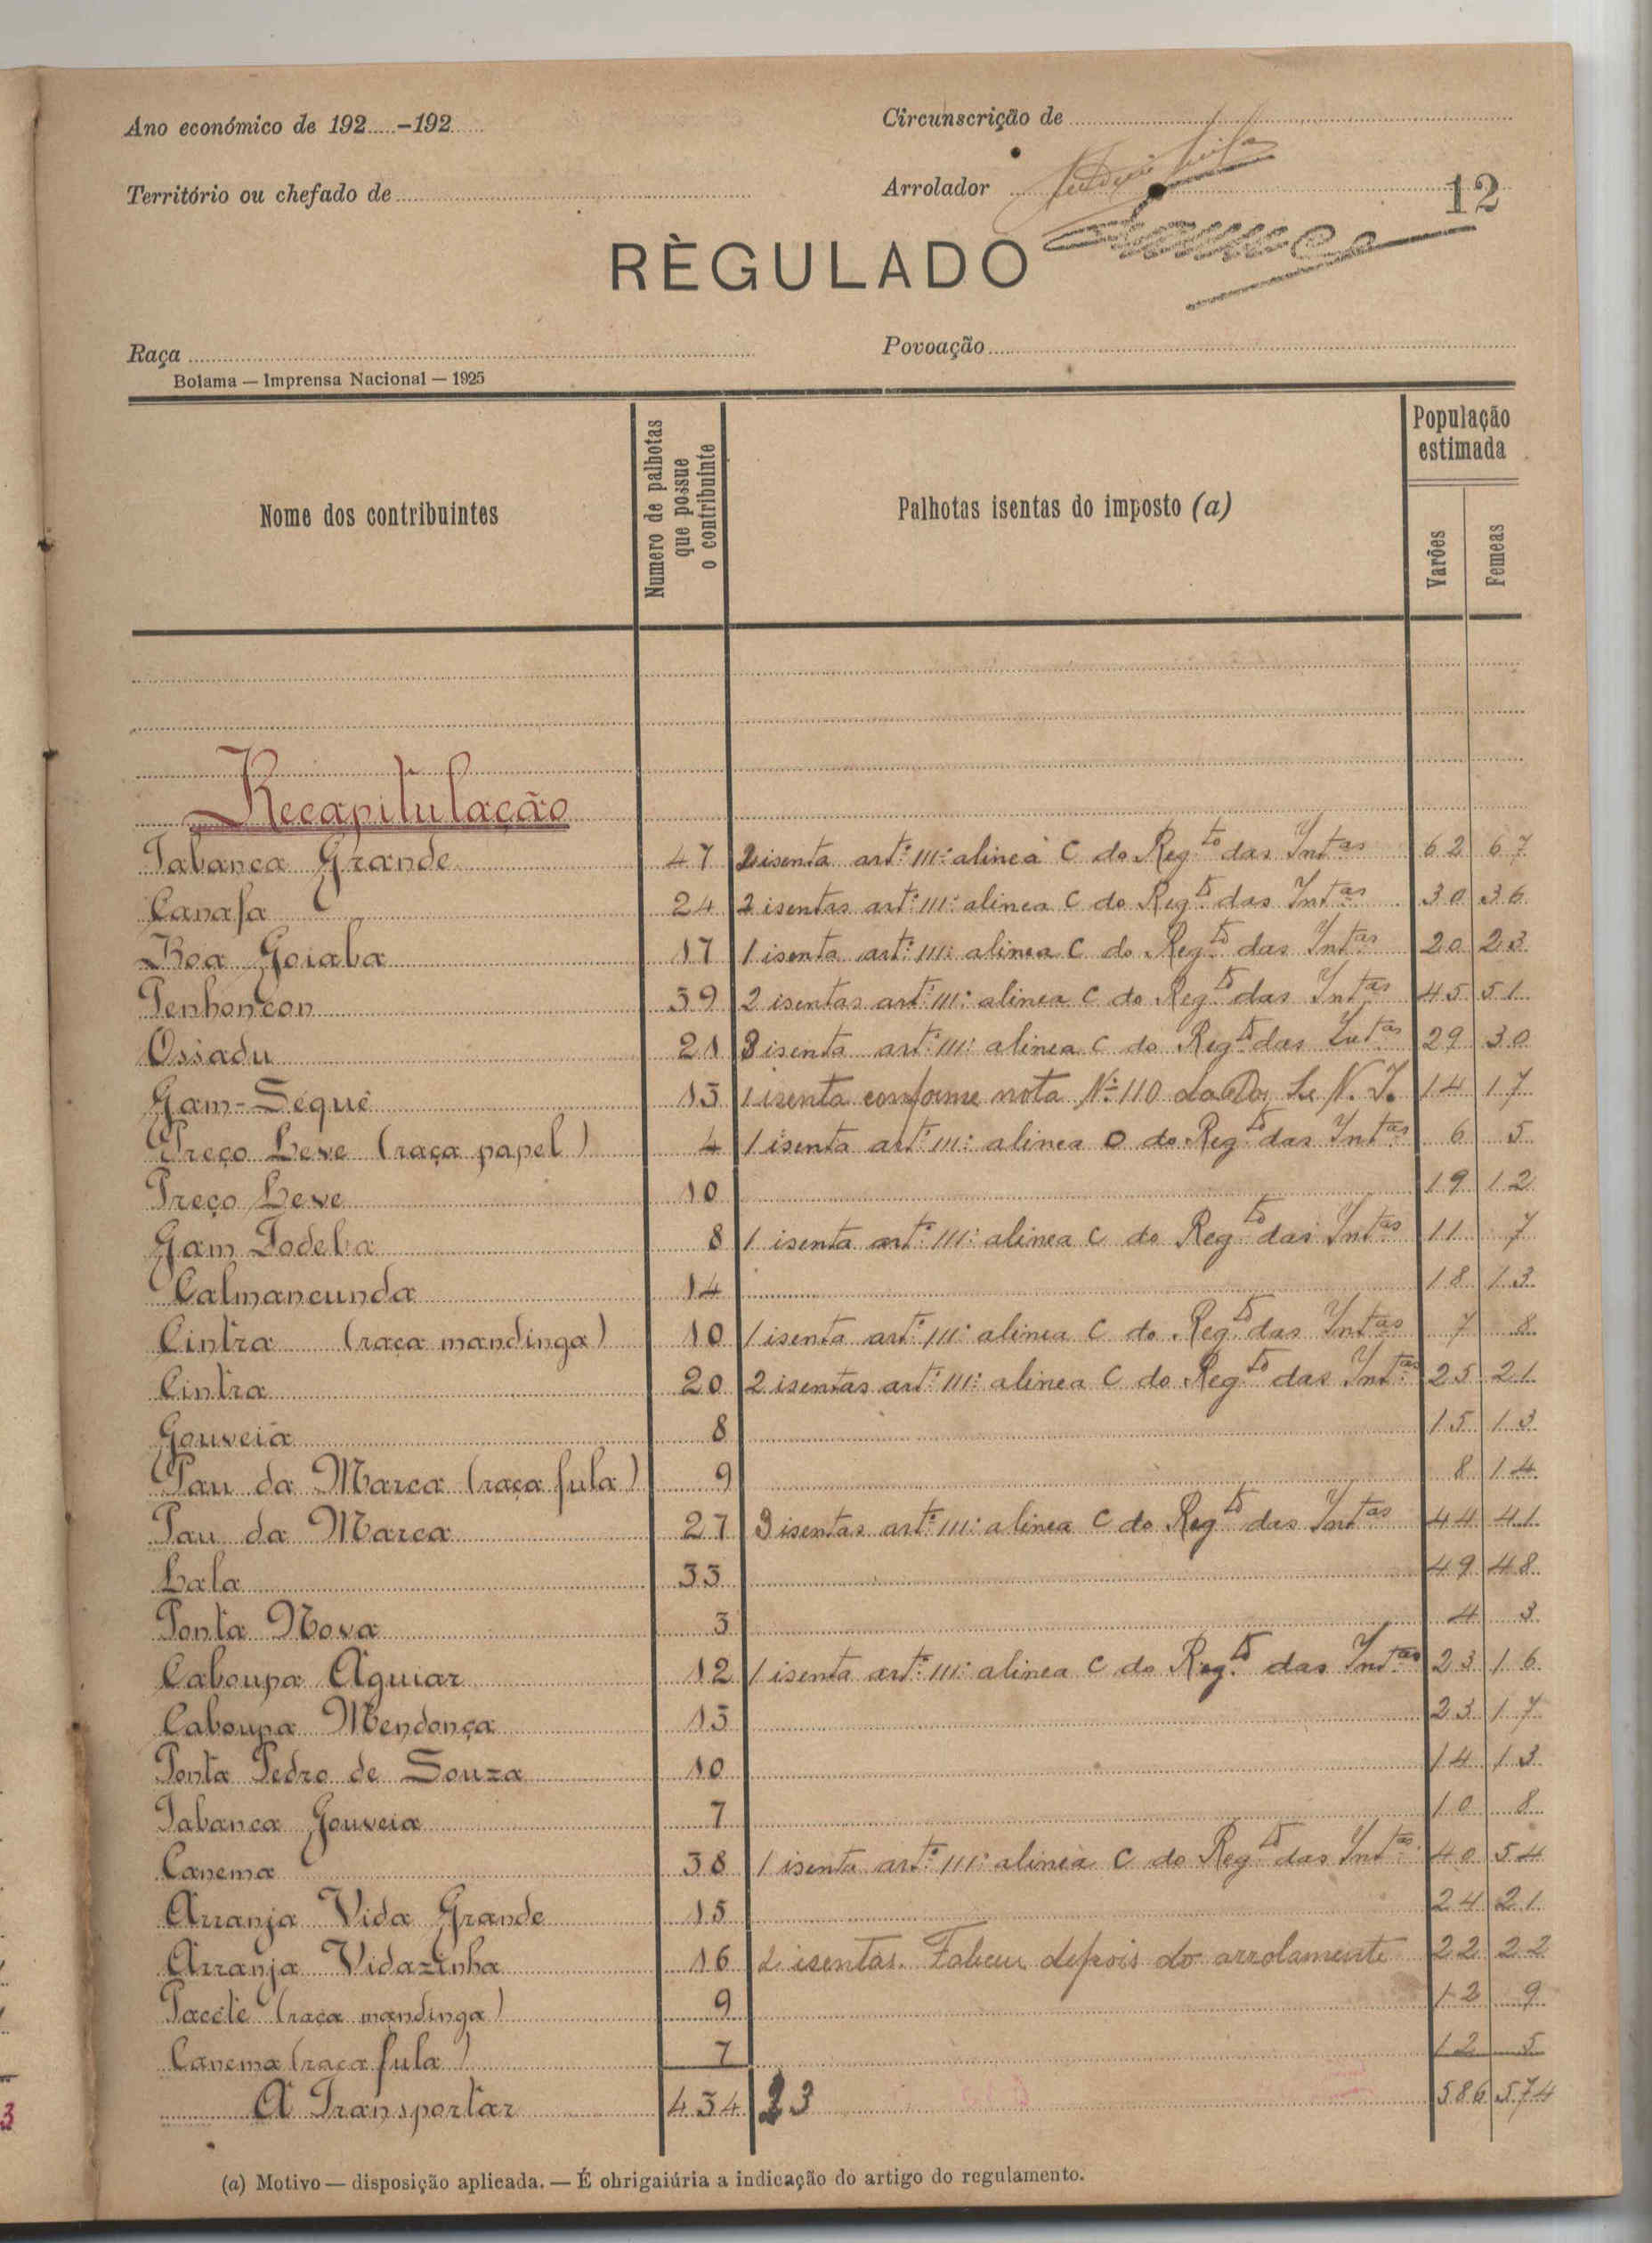 Ano económico de 192 –192
Circunscrição de
Território ou chefado de
Arrolador
12
RÈGULADO
Raça
Povoação
Bolama — Imprensa Nacional — 1925
Nome dos contribuintes
Numero de palhotas que possue o contribuinte
Palhotas isentas do imposto (a)
População estimada
Varões
Femeas
Recapitulação
Tabanca Grande 47 2 isenta artº 111º alinea C do Reg.to das Intas 62 67
Canafa 24 2 isentas artº 111º alinea C do Reg.to das Intas 30 36
Boa Goiaba 17 1 isenta artº 111º alinea C do Reg.to das Intas 20 23
Penhoncon 39 2 isentas artº 111º alinea C do Reg.to das Intas 45 51
Ossadu 21 3 isenta artº 111º alinea C do Reg.to das Intas 29 30
Gam-Sequé 13 1 isenta conforme nota Nº 110 N. I. 14 17
Preço Leve (raça papel) 4 1 isenta artº 111º alinea D do Reg.to das Intas 6 5
Preço Leve 10 19 12
Gam Fodeba 8 1 isenta artº 111º alinea C do Reg.to das Intas 11 7
Calmancunda 14 18 13
Cintra (raça mandinga) 10 1 isenta artº 111º alinea C do Reg.to das Intas 7 8
Cintra 20 2 isentas artº 111º alinea C do Reg.to das Intas 25 21
Gouveia 8 15 13
Pau da Marca (raça fula) 9 8 14
Pau da Marca 27 3 isentas artº 111º alinea C do Reg.to das Intas 44 41
Lala 33 49 48
Ponta Nova 3 4 3
Caboupa Aguiar 12 1 isenta artº 111º alinea C do Reg.to das Intas 23 16
Caboupa Mendonça 13 23 17
Ponta Pedro de Souza 10 14 13
Tabanca Gouveia 7 10 8
Canema 38 1 isenta artº 111º alinea C do Reg.to das Intas 40 54
Arranja Vida Grande 15 24 21
Arranja Vidazinha 16 2 isentas. Faleceu depois do arrolamento 22 22
Pacéte (raça mandinga) 9 12 9
Canema (raça fula) 7 12 5
A Transportar 434 23 586 574
(a) Motivo — disposição aplicada. — É obrigaiúria a indicação do artigo do regulamento.